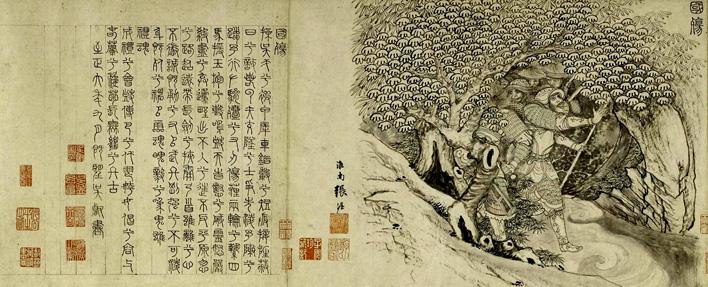 國殤
淮南張渥
國殤
操吳戈兮被犀甲車錯轂兮短兵接旌蔽
日兮敵若雲矢交墜兮士爭先凌余陣兮
躐余行左驂殪兮右刃傷霾兩輪兮縶四
馬援玉枹兮擊鳴鼓天時懟兮威靈怒嚴
殺盡兮棄原野出不入兮往不反平原忽
兮路超遠帶長劍兮挾秦弓首雖離兮心
不懲誠既勇兮又以武終剛強兮不可凌
身既死兮神以靈魂魄毅兮為鬼雄
禮魂
成禮兮會鼓傳芭兮代舞姱女倡兮容與
春蘭兮秋菊長無絕兮終古
至正六年